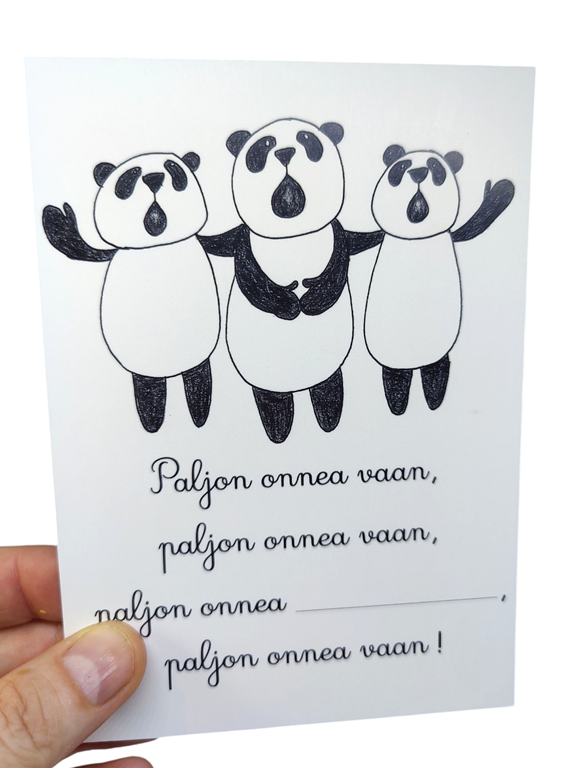 Paljon onnea vaan,
paljon onnea vaan,
paljon onnea ____________,
paljon onnea vaan!